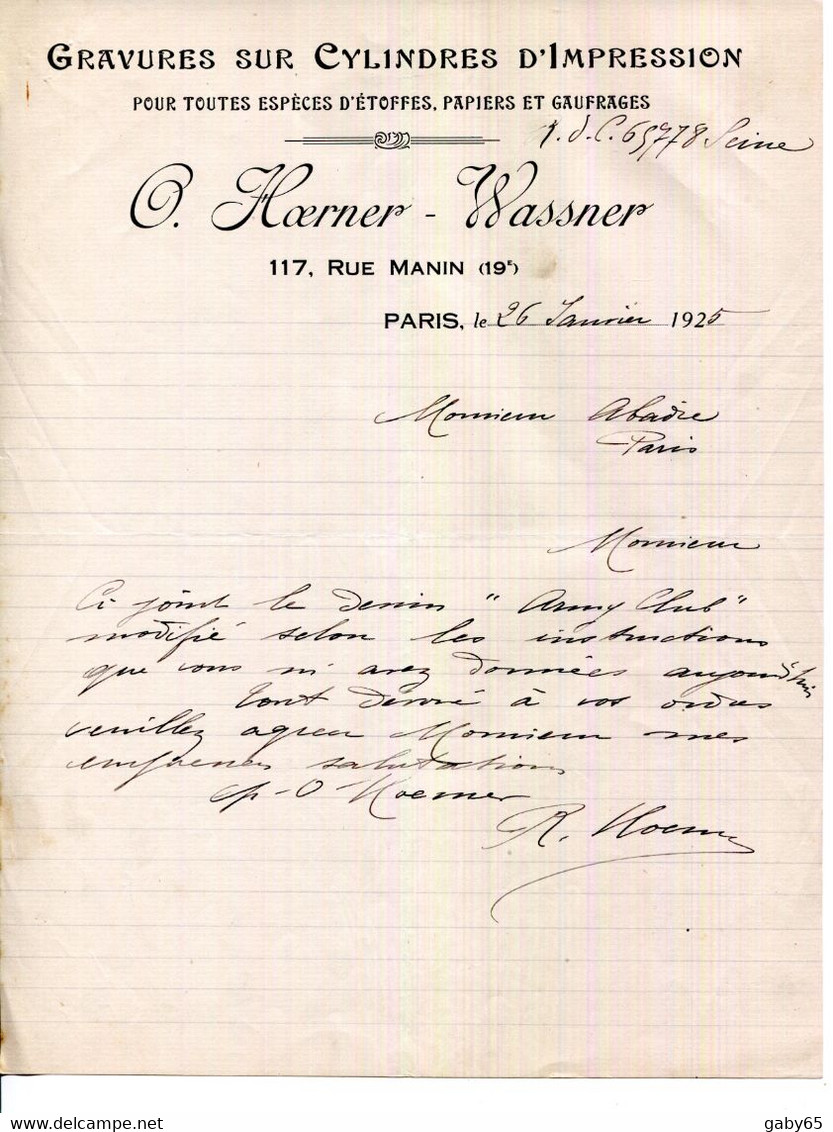 GRAVURES SUR CYLINDRES D'IMPRESSION
POUR TOUTES ESPÈCES D'ÉTOFFES, PAPIERS ET GAUFRAGES
r. d. C. 65778 Seine
O. Hœrner - Wassner
117, RUE MANIN (19E)
PARIS, le 26 Janvier 1925
Monsieur Abadie
Paris
Monsieur
Ci joint le dessin "Army Club"
modifié selon les instructions
que vous m'avez données aujourd'hui
Tout dévoué à vos ordres
veuillez agréer Monsieur mes
empressées salutations
p-O Hoerner
R. Hoerner
delcampe.net
gaby65